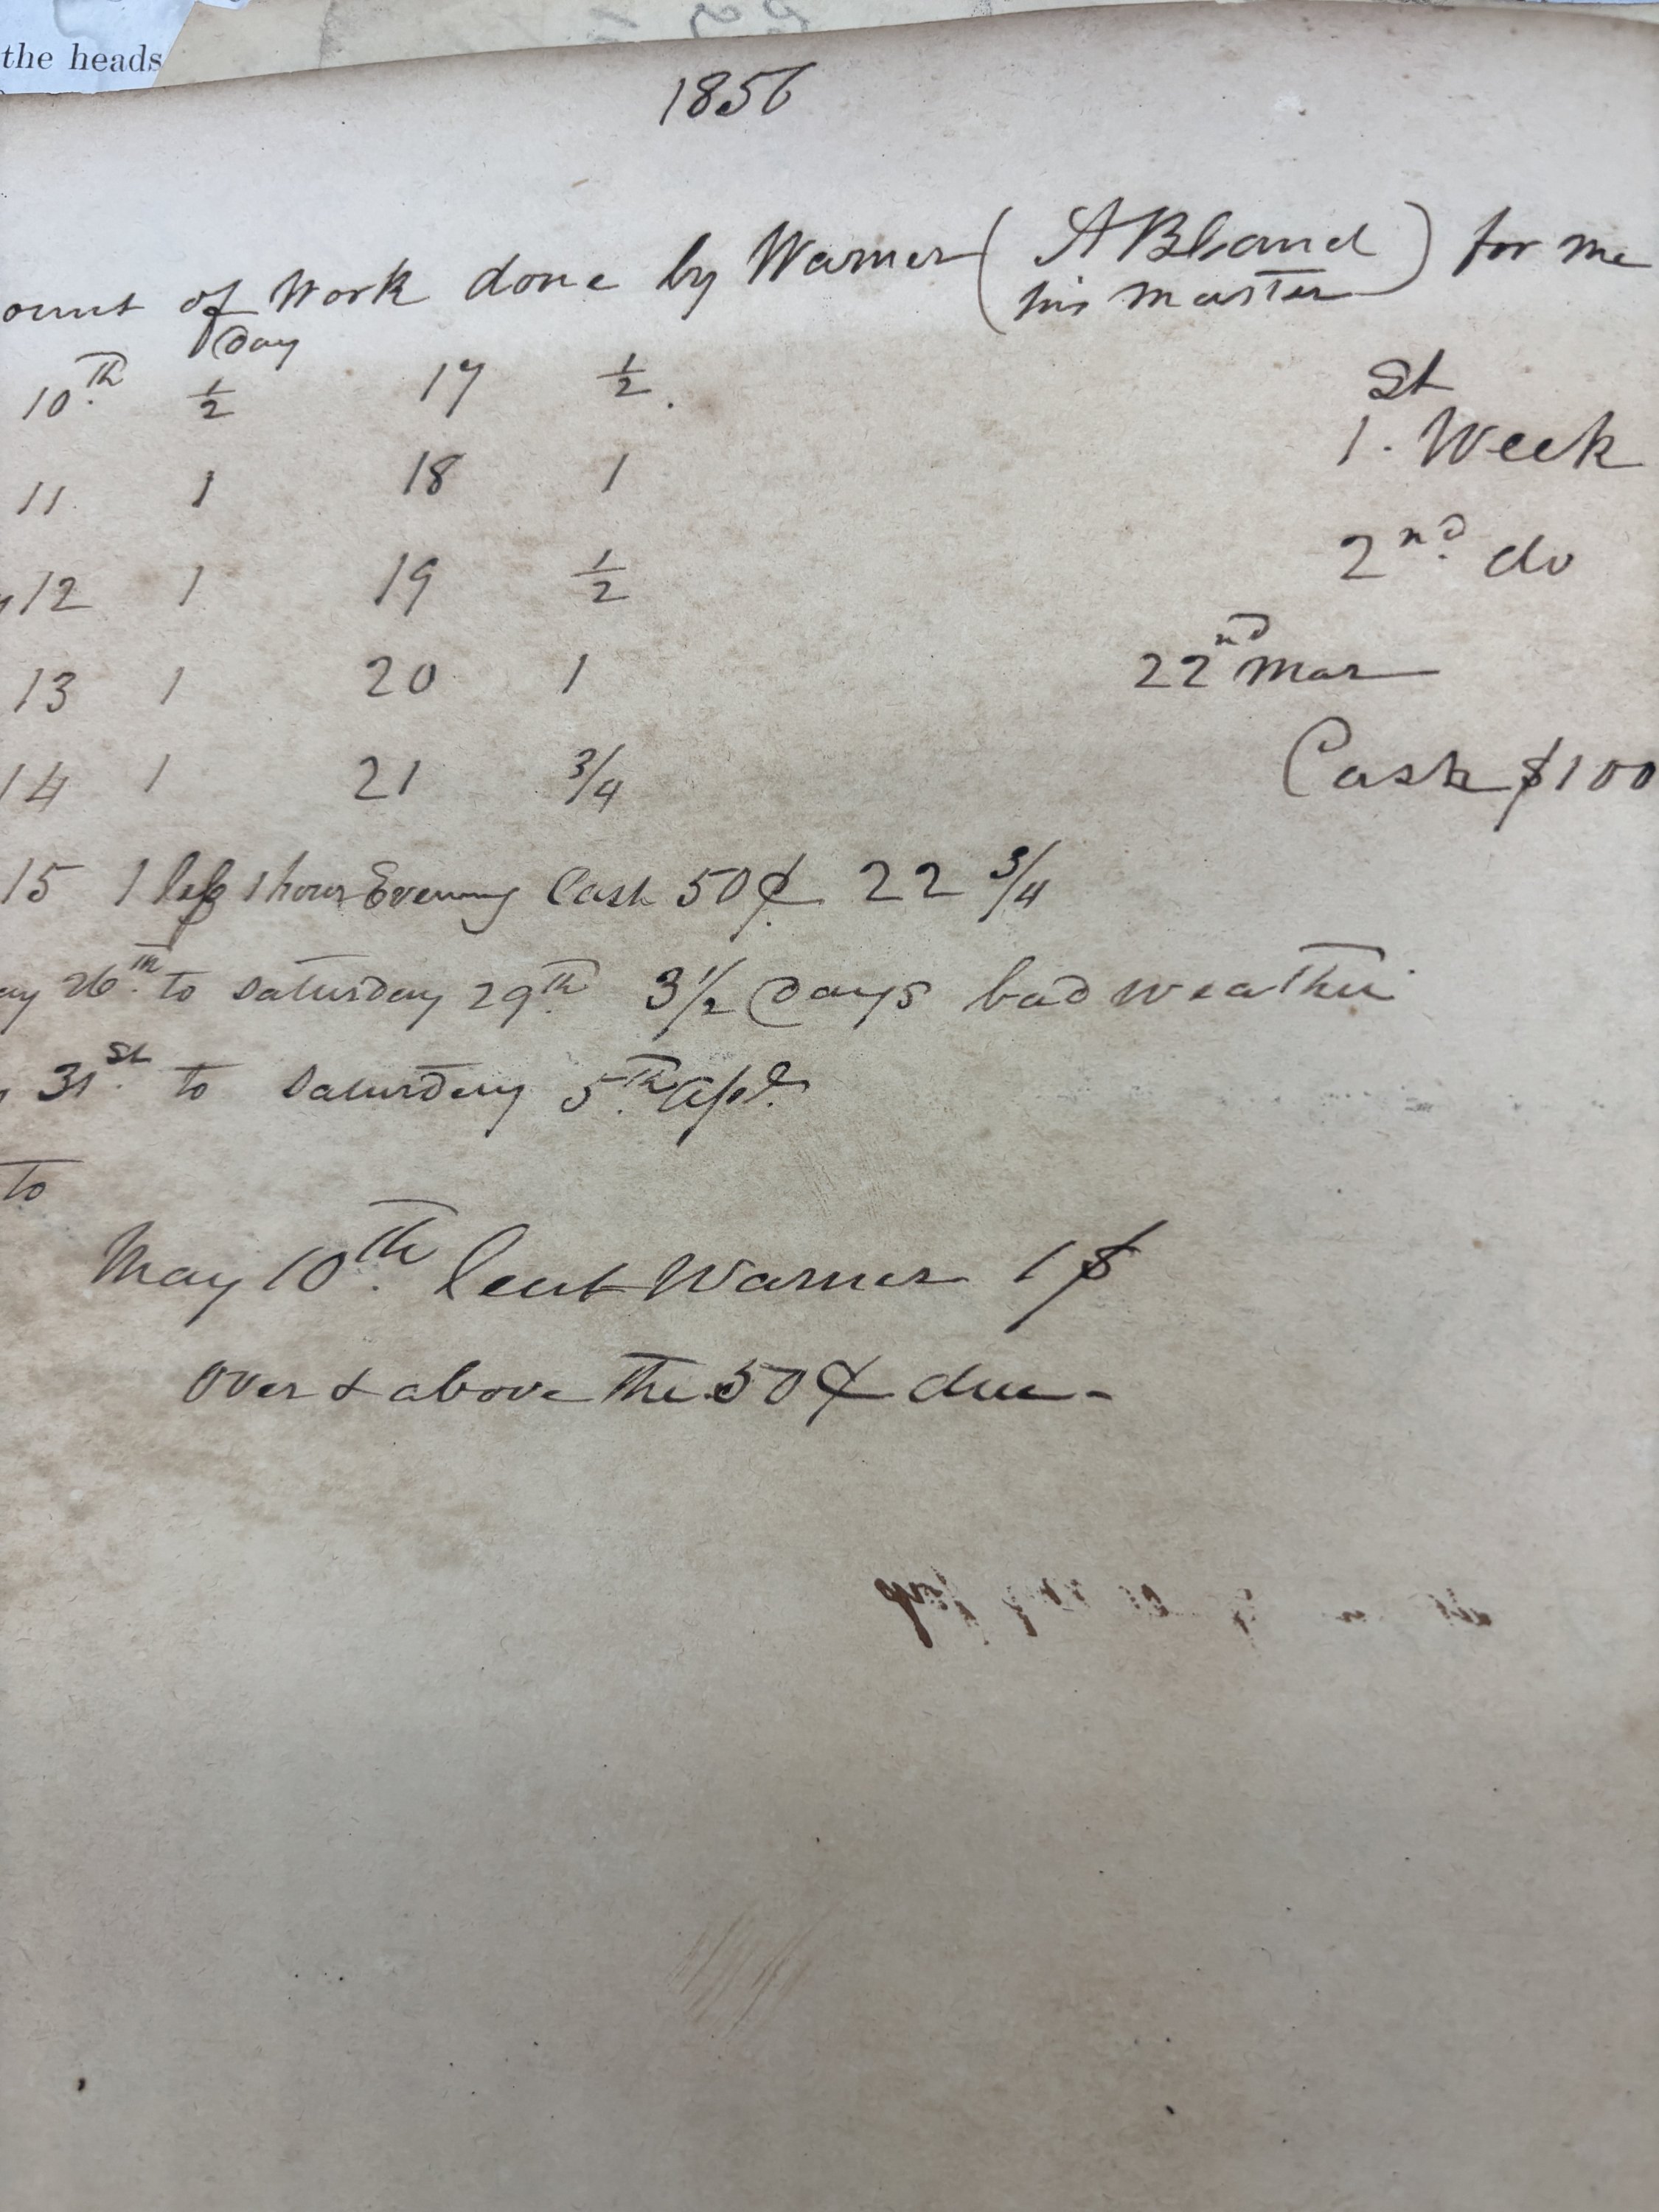 the heads
1856
ount of Work done by Warner ( A Bland ) for me
his master
Day
10th. 1/2 17 1/2.
st
1. Week
11 1 18 1
2nd. do
12 1 19 1/2
22nd Mar
13 1 20 1
Cash $100
14 1 21 3/4
15 1 left 1 hour Evening Cash 50¢ 22 3/4
ay 26th. to Saturday 29th. 3 1/2 Days bad weather
31st. to Saturday 5th. Apl.
to
May 10th. lent Warner 1$
over & above the 50¢ due-